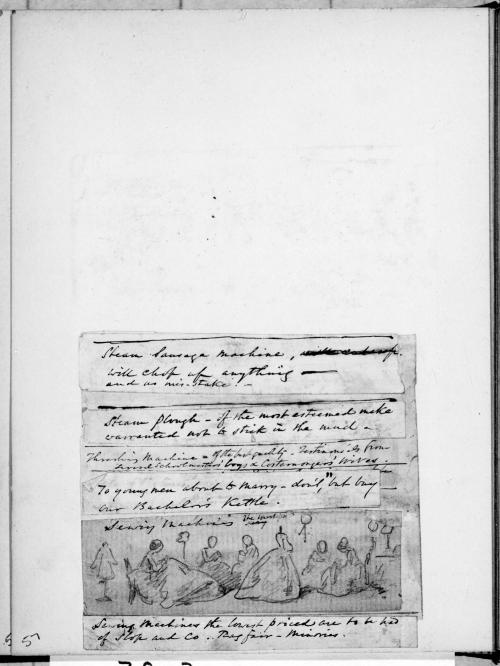 Steam Sausage machine,
will chop up anything
and no mis-take! -
Steam Plough - of the most esteemed make
warranted not to stick in the mud -
Thrashing Machine - of the quality - Testimonials from
School boys & Costermongers' Wives.
To young men about to marry - don't, "but buy
our Bachelor's Kettle.
Sewing Machines the
Sewing Machines the lowest priced are to be had
of Slop and Co. - Minories.